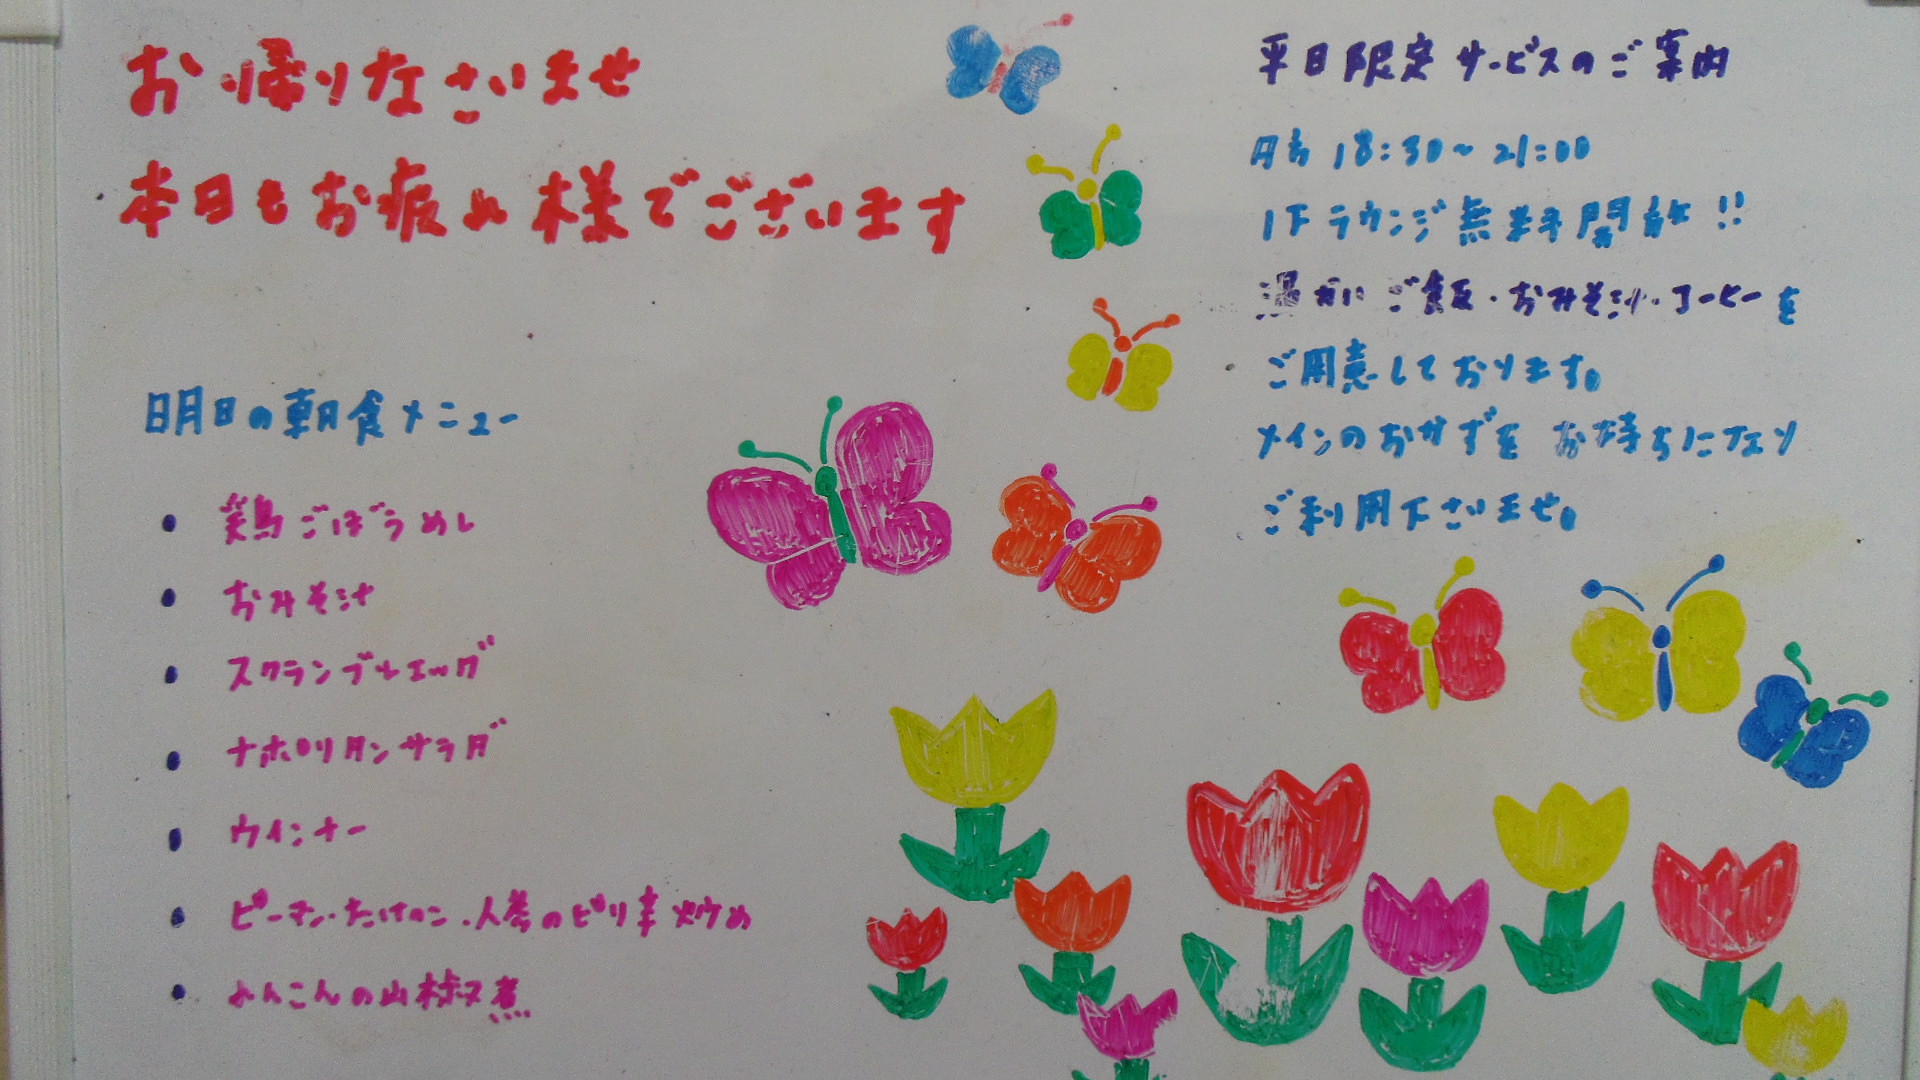 お帰りなさいませ
本日もお疲れ様でございます
明日の朝食メニュー
・鶏ごぼうめし
・おみそ汁
・スクランブルエッグ
・ナポリタンサラダ
・ウインナー
・ピーマン・たけのこ・人参のピリ辛炒め
・れんこんの山椒煮
平日限定サービスのご案内
18:30~21:00
1Fラウンジ無料開放!!
温かいご飯・おみそ汁・コーヒーを
ご用意しております。
メインのおかずをお持ちになり
ご利用下さいませ。